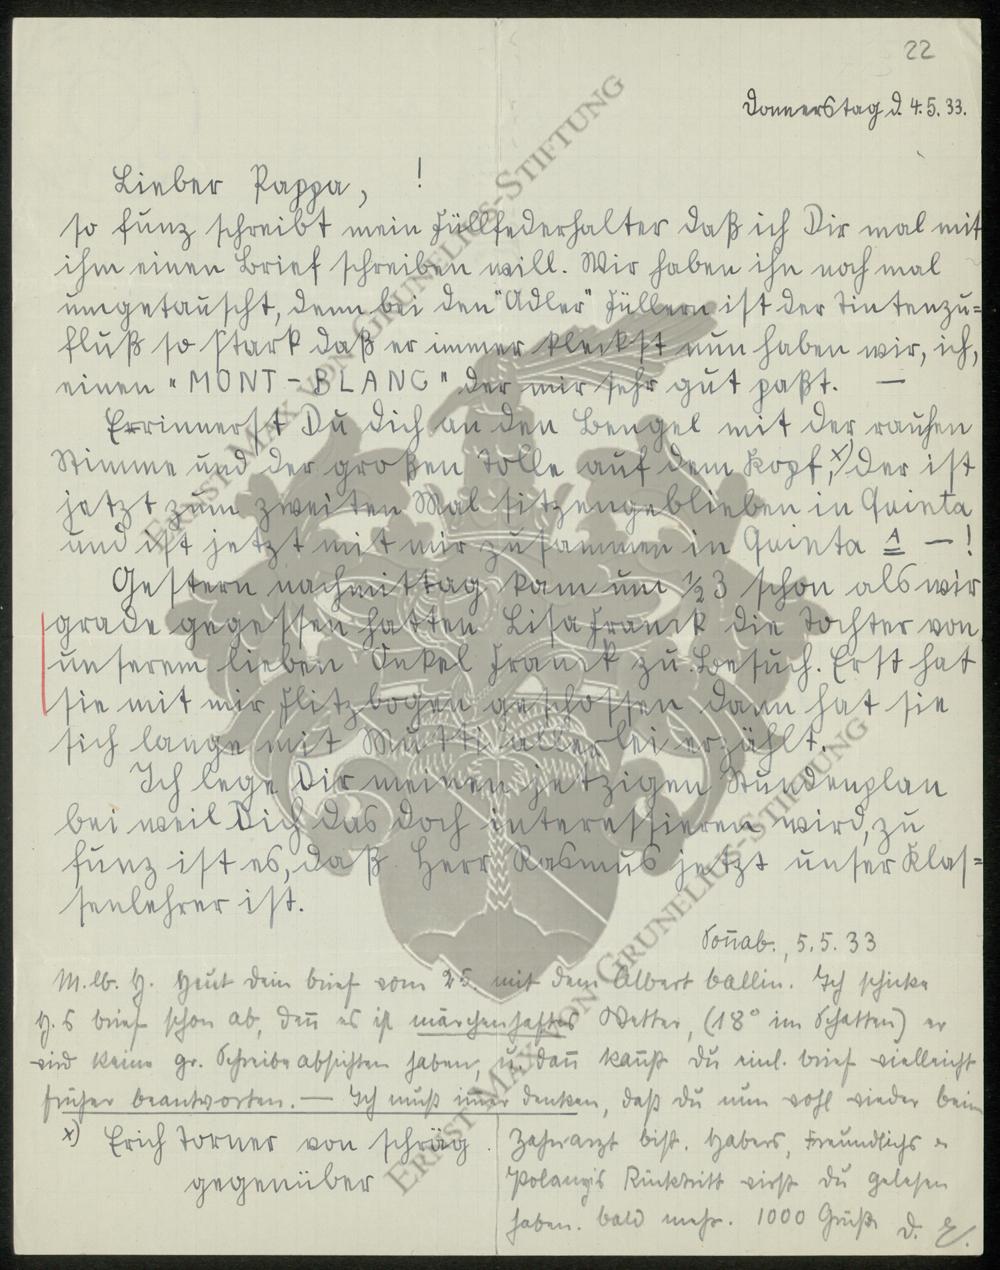 22
Donnerstag d. 4.5.33.
Lieber Pappa, !
so funz schreibt mein Füllfederhalter daß ich Dir mal mit
ihm einen Brief schreiben will. Wir haben ihn noch mal
umgetauscht, denn bei den "Adler" Füllern ist der Tintenzu=
fluß so stark daß er immer kleckst nun haben wir, ich,
einen "MONT-BLANC" der mir sehr gut paßt. —
Errinnerst Du Dich an den Bengel mit der rauhen
Stimme und der großen Tolle auf dem Kopf, x) der ist
jetzt zum zweiten Mal sitzengeblieben in Quinta
und ist jetzt mit mir zusammen in Quinta 1 — !
Gestern nachmittag kam um ½3 schon als wir
grade gegessen hatten Lisa Franck die Tochter von
unserem lieben Onkel Franck zu Besuch. Erst hat
sie mit mir Flitzbogen geschossen dann hat sie
sich lange mit Mutti allerlei erzählt.
Ich lege Dir meinen jetzigen Stundenplan
bei weil Dich das doch interessieren wird, zu
funz ist es, daß Herr Rasmus jetzt unser Klas=
senlehrer ist.
Sonnab., 5.5.33
M. lb. H. Heut dein brief vom 25. mit dem Albert ballin. Ich schicke
H.s brief schon ab, denn es ist märchenhaftes Wetter, (18° im Schatten) er
wird keine gr. Schreibeabsichten haben, u. dann kannst du einl. brief vielleicht
früher beantworten. — Ich muß immer denken, daß du nun wohl wieder beim
x) Erich Torner von schräg
gegenüber
Zahnarzt bist. Habers, Freundlichs u
Polanyis Rücktritt wirst du gelesen
haben. bald mehr. 1000 Grüße
D. E.
ERNST MAX VON GRUNELIUS-STIFTUNG
ERNST MAX VON GRUNELIUS-STIFTUNG